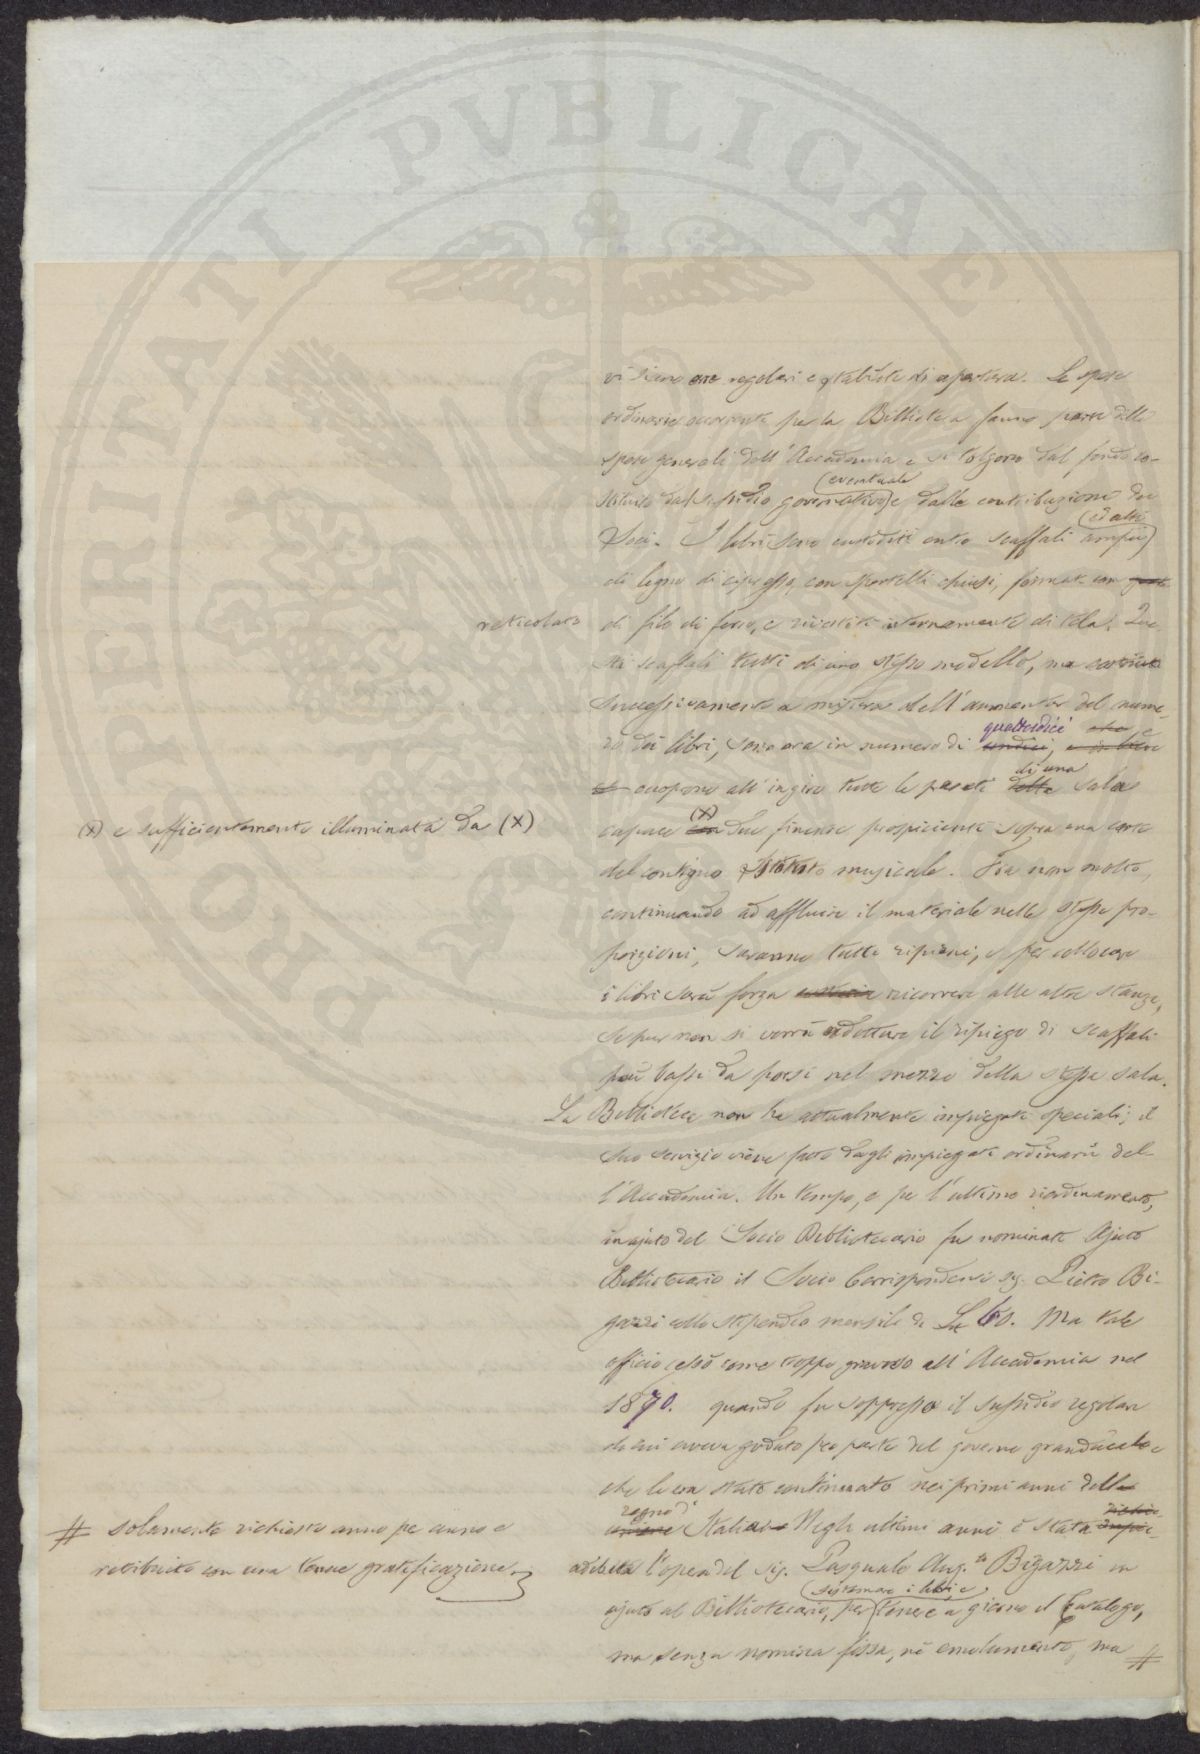 PROSPERITATI PVBLICAE
vi siano ore regolari e stabilite di apertura. Le spese
ordinarie occorrenti per la Biblioteca fanno parte delle
spese generali dell'Accademia e si tolgono dal fondo co-
stituito dal sussidio governativo e dalle contribuzioni dei
eventuale
Soci. I libri sono custoditi entro scaffali ampii
ed alti
di legno di cipresso, con sportelli chiusi, formati con
reticolato
di filo di ferro, e rivestiti internamente di tela. Que-
sti scaffali tutti di uno stesso modello, ma costruiti
successivamente a misura dell'aumentar del nume-
quattordici
ro dei libri, sono ora in numero di undici, e
di una
occupano all'ingiro tutte le pareti della sala
(x) e sufficientemente illuminata da (x)
capace (x) due finestre prospicienti sopra una corte
del contiguo Istituto musicale. Fra non molto,
continuando ad affluire il materiale nelle stesse pro-
porzioni, saranno tutti ripieni, e per collocare
i libri sarà forza ricorrere alle altre stanze,
se pur non si vorrà adottare il ripiego di scaffali
più bassi da porsi nel mezzo della stessa sala.
La Biblioteca non ha attualmente impiegati speciali; il
suo servizio viene fatto dagli impiegati ordinarii del-
l'Accademia. Un tempo, e per l'ultimo riordinamento,
in ajuto del Socio Bibliotecario fu nominato Ajuto
Bibliotecario il Socio Corrispondente sig. Pietro Bi-
gazzi collo stipendio mensile di
Ma tale
officio cessò come troppo gravoso all'Accademia nel
1870. quando fu soppresso il sussidio regolare
di cui aveva goduto per parte del governo granducale e
che le era stato continuato nei primi anni del
regno d'
Italia. Negli ultimi anni è stata
adibita l'opera del sig. Pasquale Aug.to Bigazzi in
sistemare i libri e
ajuto al Bibliotecario, per tenere a giorno il Catalogo,
ma senza nomina fissa, nè emolumento, ma #
# solamente richiesto anno per anno e
retribuito con una tenue gratificazione